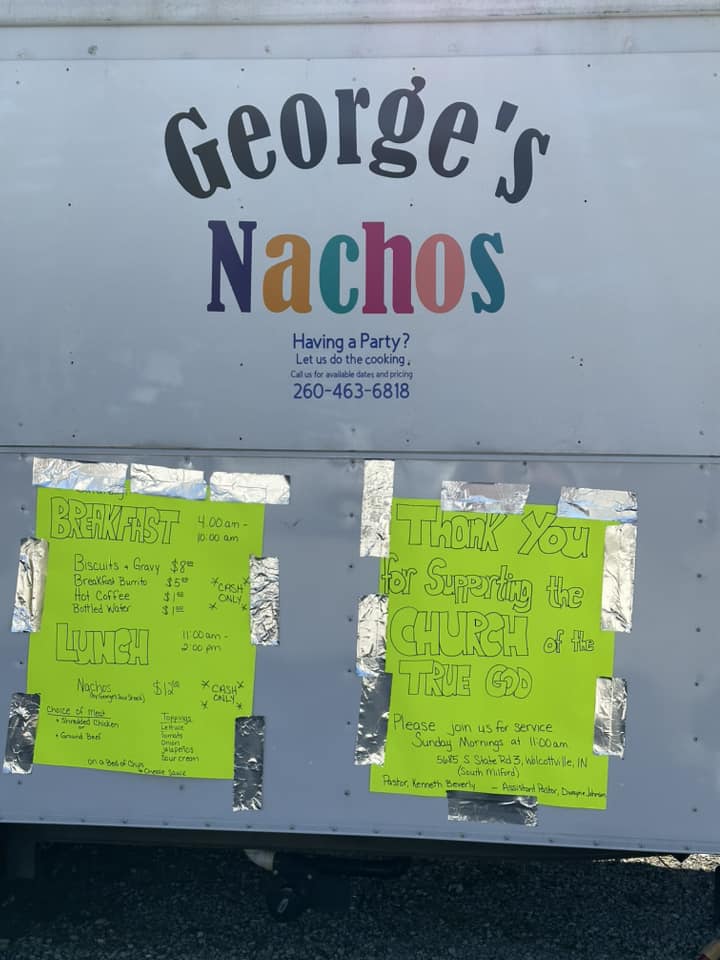 George's
Nachos
Having a Party?
Let us do the cooking.
Call us for available dates and pricing
260-463-6818
BREAKFAST 4:00am -
10:00am
Biscuits + Gravy $8⁰⁰
Breakfast Burrito $5⁰⁰
Hot Coffee $1⁰⁰
Bottled Water $1⁰⁰
*CASH*
ONLY
* *
LUNCH 11:00am -
2:00pm
Nachos $12⁰⁰
* CASH *
ONLY
* *
Choice of Meat
+ Shredded Chicken
or
+ Ground Beef
Toppings
Lettuce
Tomato
Onion
Jalapeños
Sour cream
on a Bed of Chips
+ Cheese Sauce
THANK YOU
for Supporting the
CHURCH of the
TRUE GOD
Please join us for service
Sunday Mornings at 11:00am
5685 S State Rd 3, Wolcottville, IN
(South Milford)
Pastor, Kenneth Beverly – Assistant Pastor, Dwayne Johnson